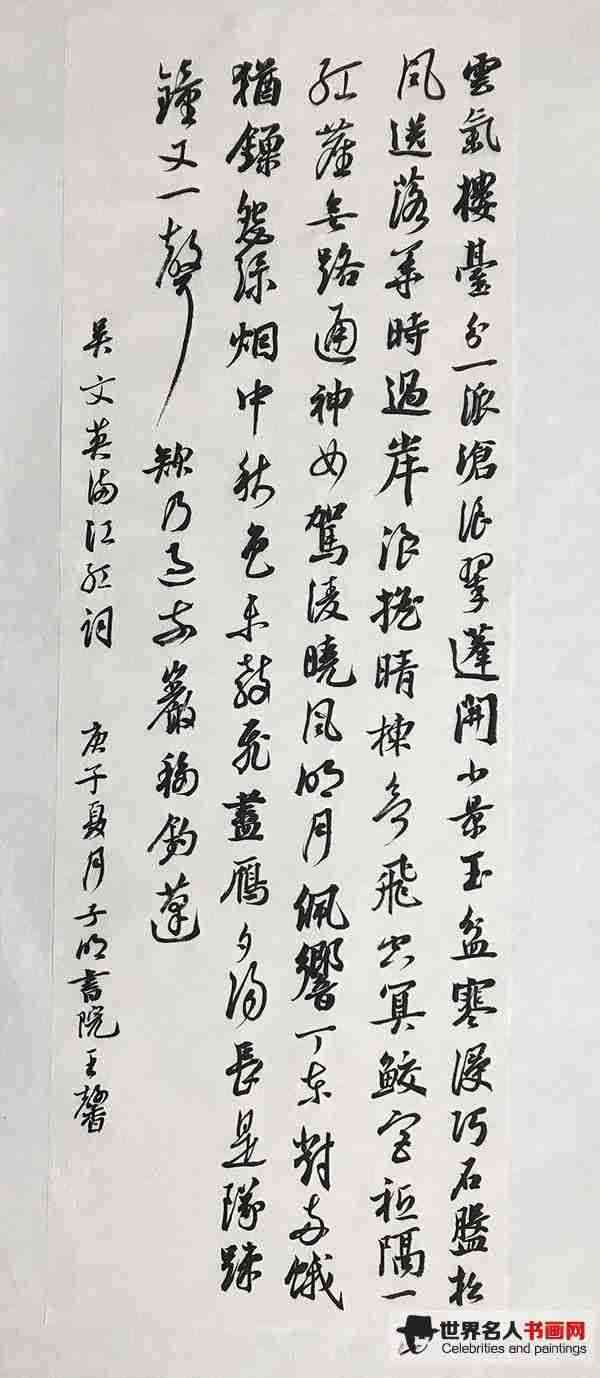 雲氣樓臺分一派滄浪翠蓬開小景玉盆寒浸巧石盤松
風送落華時過岸浪摇晴棟欲飛空算鮫宫祗隔一
紅塵無路通神女駕凌曉風明月佩響丁東對兩蛾
猶鎖怨緑烟中秋色未教飛盡雁夕陽長是墜疎
鐘又一聲欸乃過前巖移釣蓬
吴文英滿江紅詞 庚子夏月子明書院王馨
世界名人书画网
Celebrities and paintings